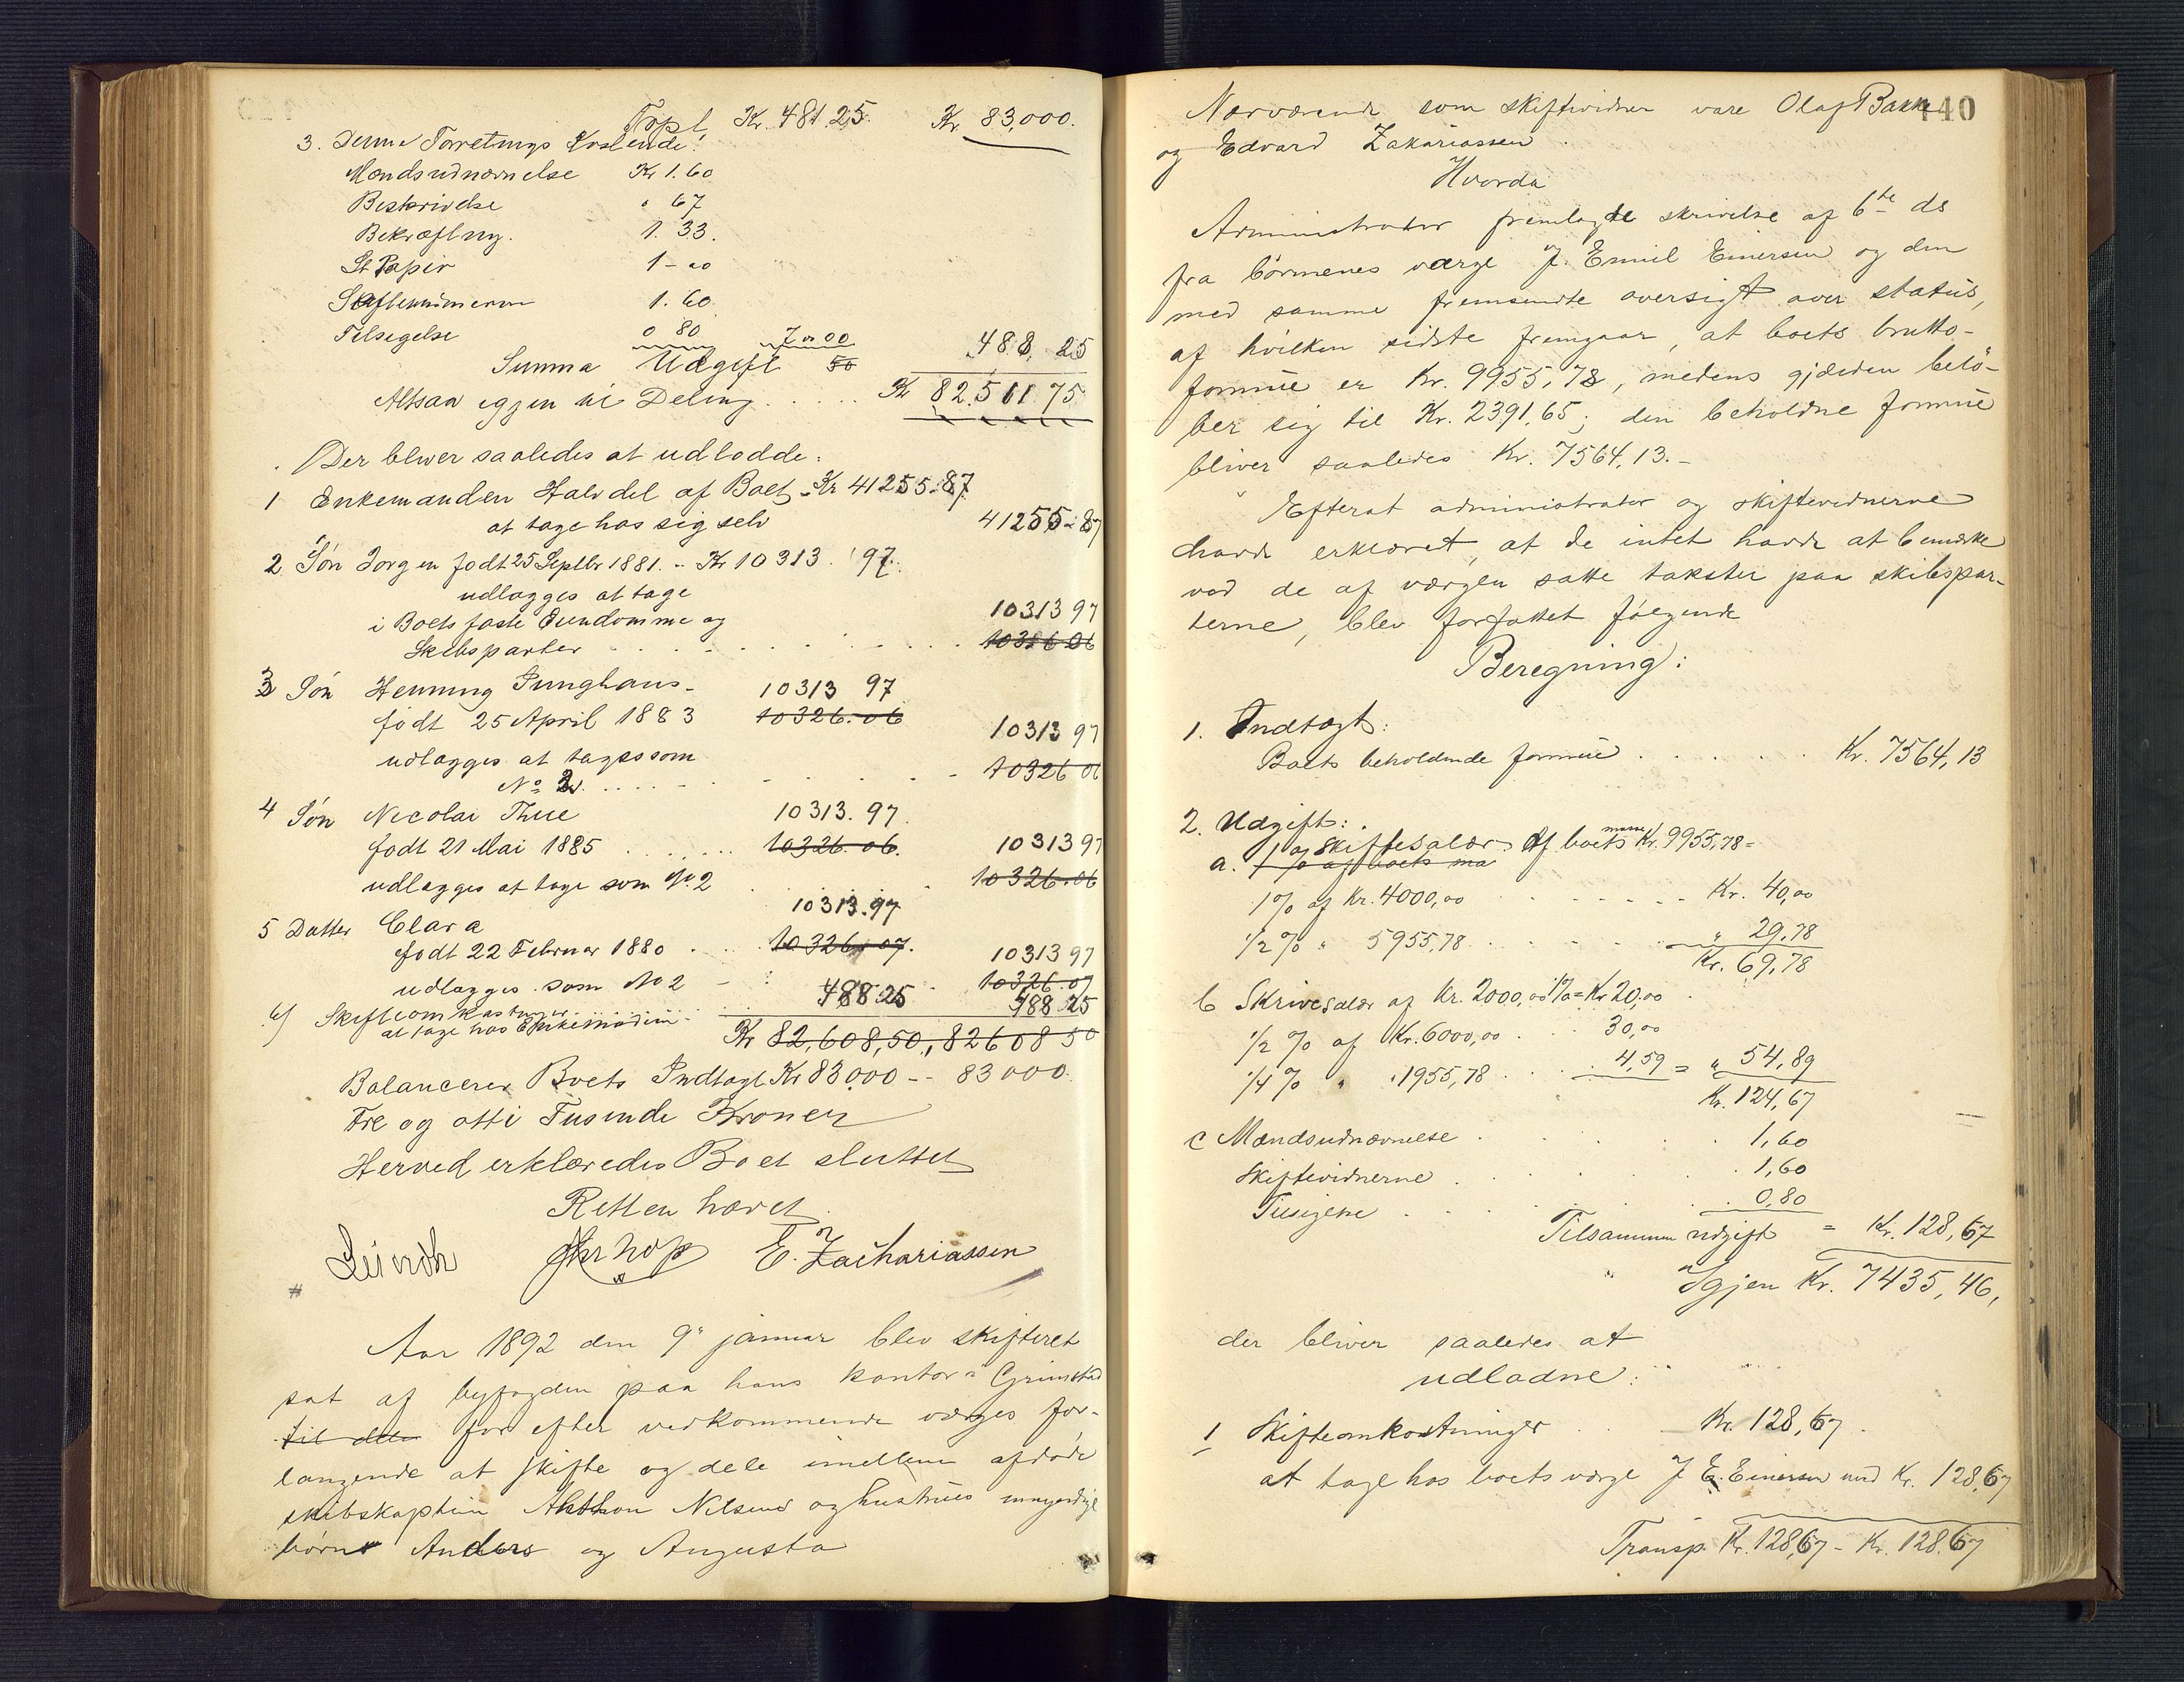 Topt Kr. 481.25. Kr 83,000.
3. Denne Forretnings Kostende:
Mændsudnævnelse Kr 1.60
Beskrivelse " 67
Bekræftning. 1. 33.
St Papir 1 - 00
Skiftevidnerne 1. 60
Tilsigelse 0 80 7 " 00
Summa Udgift 50 488, 25
Altsaa igjen til Deling . . . . . Kr 82.511 75
Der bliver saaledes at udlodde:
1 Enkemanden Halvdel af Boet - Kr 41255.87
at tage hos sig selv 41255-87
2 Søn Jorgen født 25 Septbr 1881. - Kr 10313. 97.
udlægges at tage
i Boets faste Eiendomme og 10313 97
Skibsparter . . . . . . . . 10326 06
3 Søn Henning Junghans - 10313 97
født 25 April 1883 10326.06 10313 97
udlægges at tages som
No 2. . . . . . 10326 06
4 Søn Nicolai Thue 10313. 97.
født 21 Mai 1885 . . . . . . 10326.06. 10313 97
udlægges at tage som No. 2 10326.06
10313.97
5 Datter Clara
født 22 Februar 1880 . . . 10326.07. 10313 97
udlægges som No 2 10326.07
6) Skifteomkostninger 488 25 488.25
at tage hos Enkemanden -
Kr 82,608,50, 82608 50
Balancerer Boets Indtægt Kr 83000 - - 83000.
Tre og otti Tusinde Kroner
Herved erklæredes Boet sluttet
Retten hævet
E. Zachariassen
Aar 1892 den 9" januar blev skifteret
sat af byfogden paa hans kontor i Grimstad
til den for efter vedkommende værges for-
langende at skifte og dele imellem afdøde
skibskaptein Nilsens og hustrues umyndige
børn Anders og Augusta
440
Nærværende som skiftevidner vare Olaf Bakke
og Edvard Zakariassen.
Hvorda
Administrator fremlagde skrivelse af 6te ds
fra børnenes værge J. Emil Einersen og den
med samme fremsendte oversigt over status,
af hvilken sidste fremgaar, at boets brutto-
formue er Kr. 9955,78, medens gjælden belø-
ber sig til Kr. 2391,65; den beholdne formue
bliver saaledes Kr. 7564,13.-
Efterat administrator og skiftevidnerne
havde erklæret, at de intet havde at bemærke
ved de af værgen satte takster paa skibspar-
terne, blev forfattet følgende
Beregning:
1. Indtægt:
Boets beholdende formue . . . . . Kr. 7564,13
2. Udgift:
a. 1 % af boets ma Skiftesalær af boets masse Kr. 9955,78 =
1 % af Kr. 4000,00 . . . . . . Kr. 40,00
1/2 % " 5955,78 . . . . . " 29,78
Kr. 69,78
b Skrivesalær af Kr. 2000,00 1% = Kr 20,00
1/2 % af Kr. 6000,00 . . 30,00
1/4 % " " 1955,78 . . . . 4,59 = " 54,89
Kr. 124,67
c Mændsudnævnelse . . . . . 1,60
Skiftevidnerne . . . . . 1,60
Tilsigelse . . . . . 0,80
Tilsammen udgift = Kr. 128,67
Igjen Kr. 7435,46,
der bliver saaledes at
udlodne:
1 Skifteomkostninger . . . Kr. 128,67.
at tage hos boets værge J E. Einersen med Kr. 128,67
Transp. Kr. 128,67 - Kr. 128.67